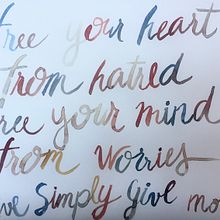 free your heart
from hatred
free your mind
from worries
Simply give